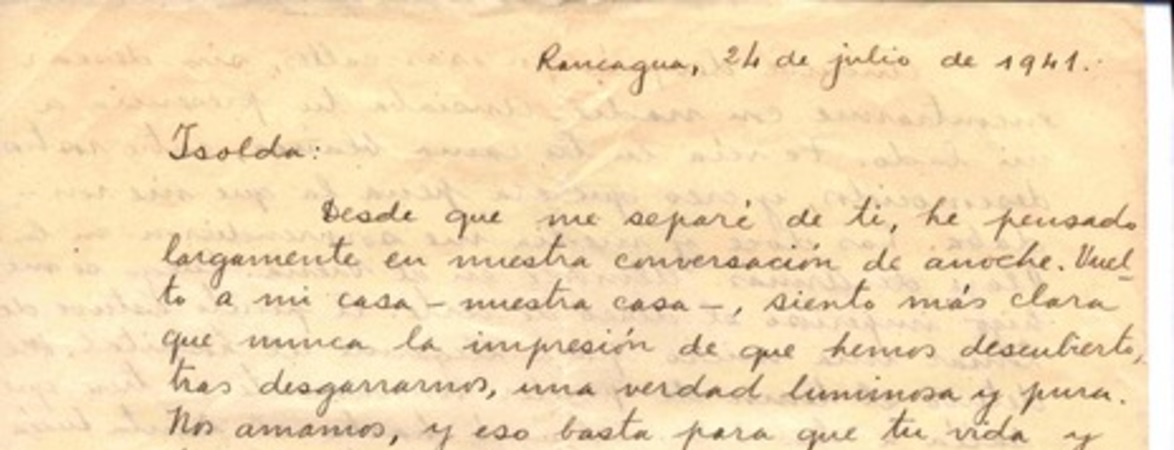 Rancagua, 24 de julio de 1941.
Isolda:
Desde que me separé de ti, he pensado
largamente en nuestra conversación de anoche. Vuel-
to a mi casa – nuestra casa –, siento más clara
que nunca la impresión de que hemos descubierto,
tras desgarrarnos, una verdad luminosa y pura.
Nos amamos, y eso basta para que tu vida y